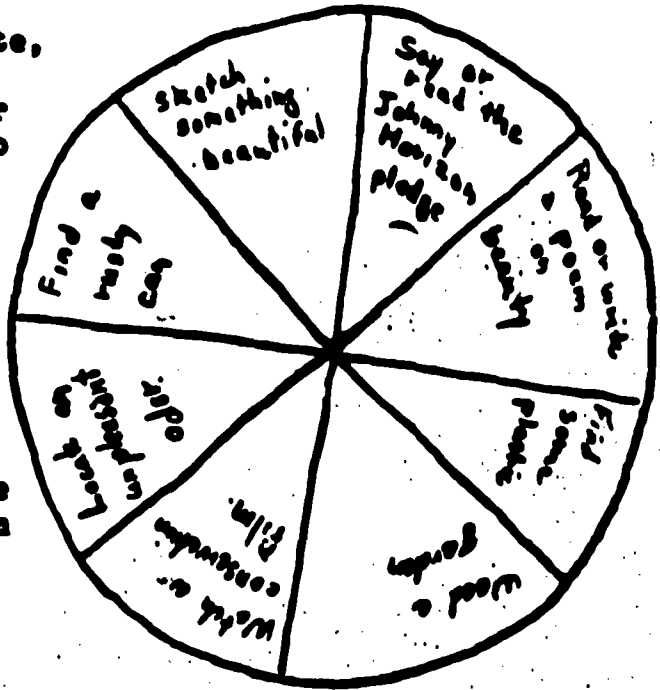 te,
sketch
something
beautiful
Say or
read the
Johnny
Horizon
pledge
Read or write
a poem
on
beauty
Find
some
plastic
Weed a
garden
Watch a
conservation
film.
Locate an
unpleasant
odor.
Find a
rusty
can